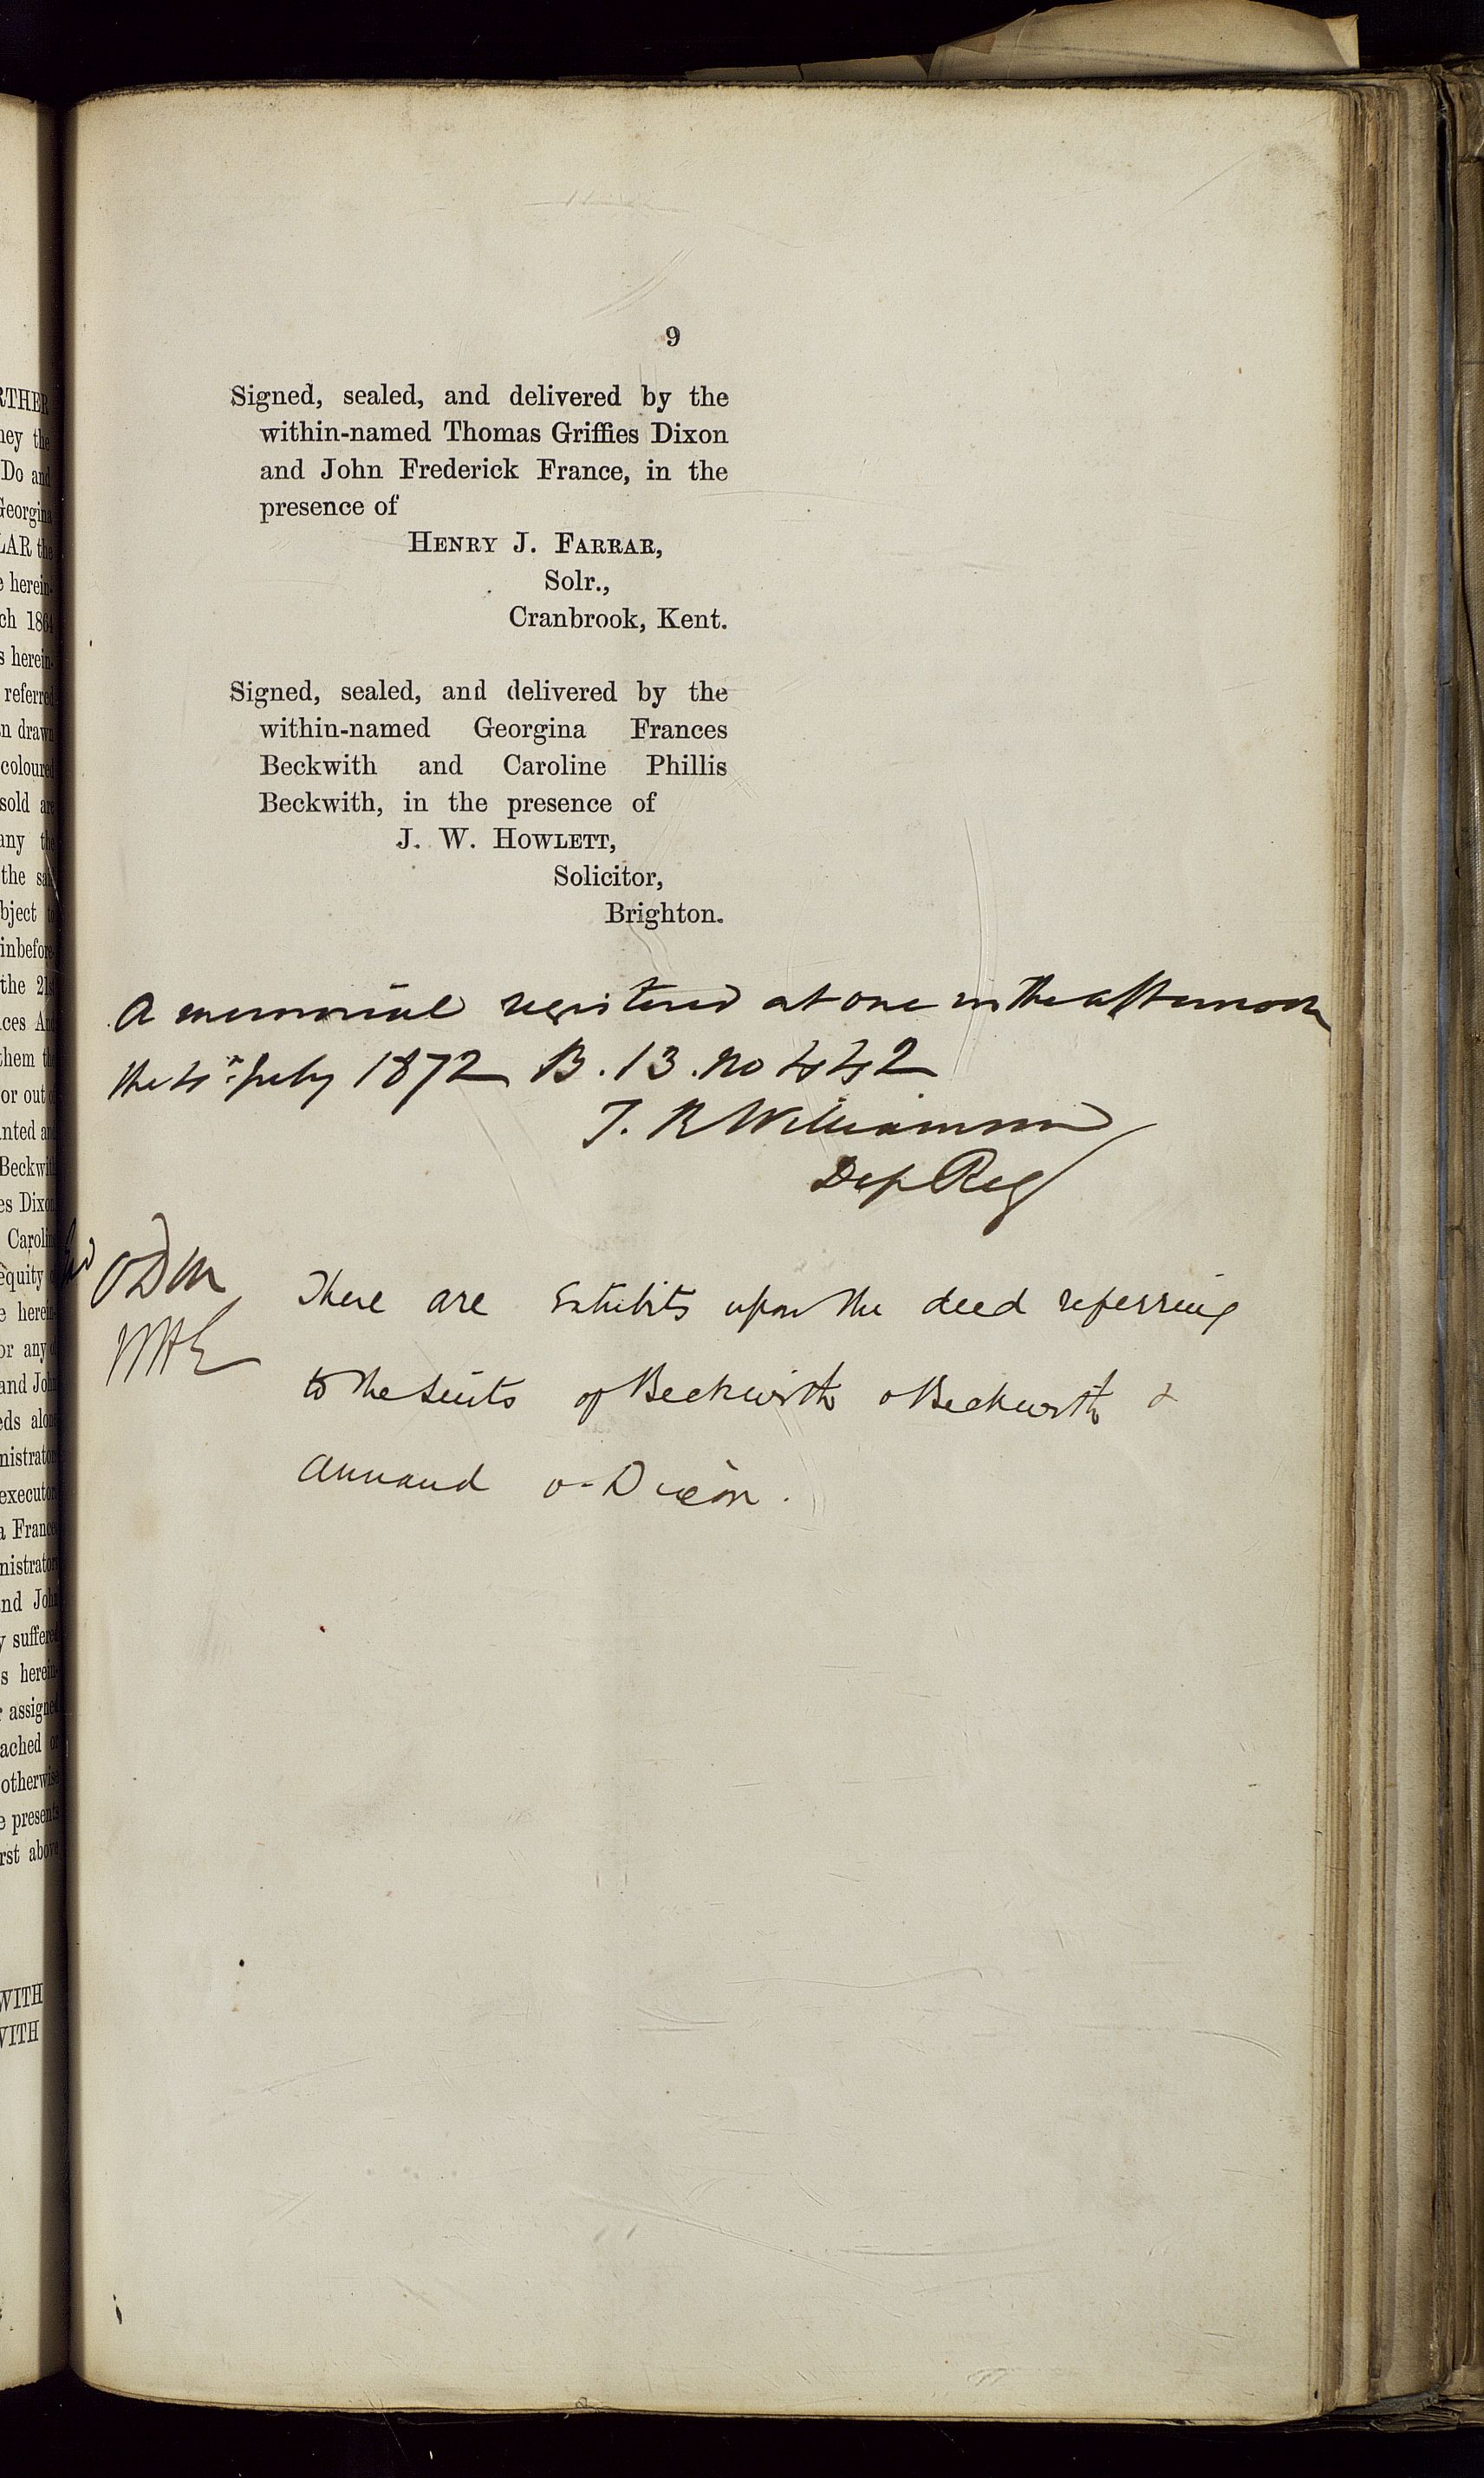 9
Signed, sealed, and delivered by the
within-named Thomas Griffies Dixon
and John Frederick France, in the
presence of
HENRY J. FARRAR,
Solr.,
Cranbrook, Kent.
Signed, sealed, and delivered by the
within-named Georgina Frances
Beckwith and Caroline Phillis
Beckwith, in the presence of
J. W. HOWLETT,
Solicitor,
Brighton.
A memorial registered at one in the afternoon
the 4th July 1872 B. 13. no 442
T. R Williamson
Dep Reg
There are Exhibits upon the deed referring
to the suits of Beckwith v Beckwith &
Annand v. Dixon.